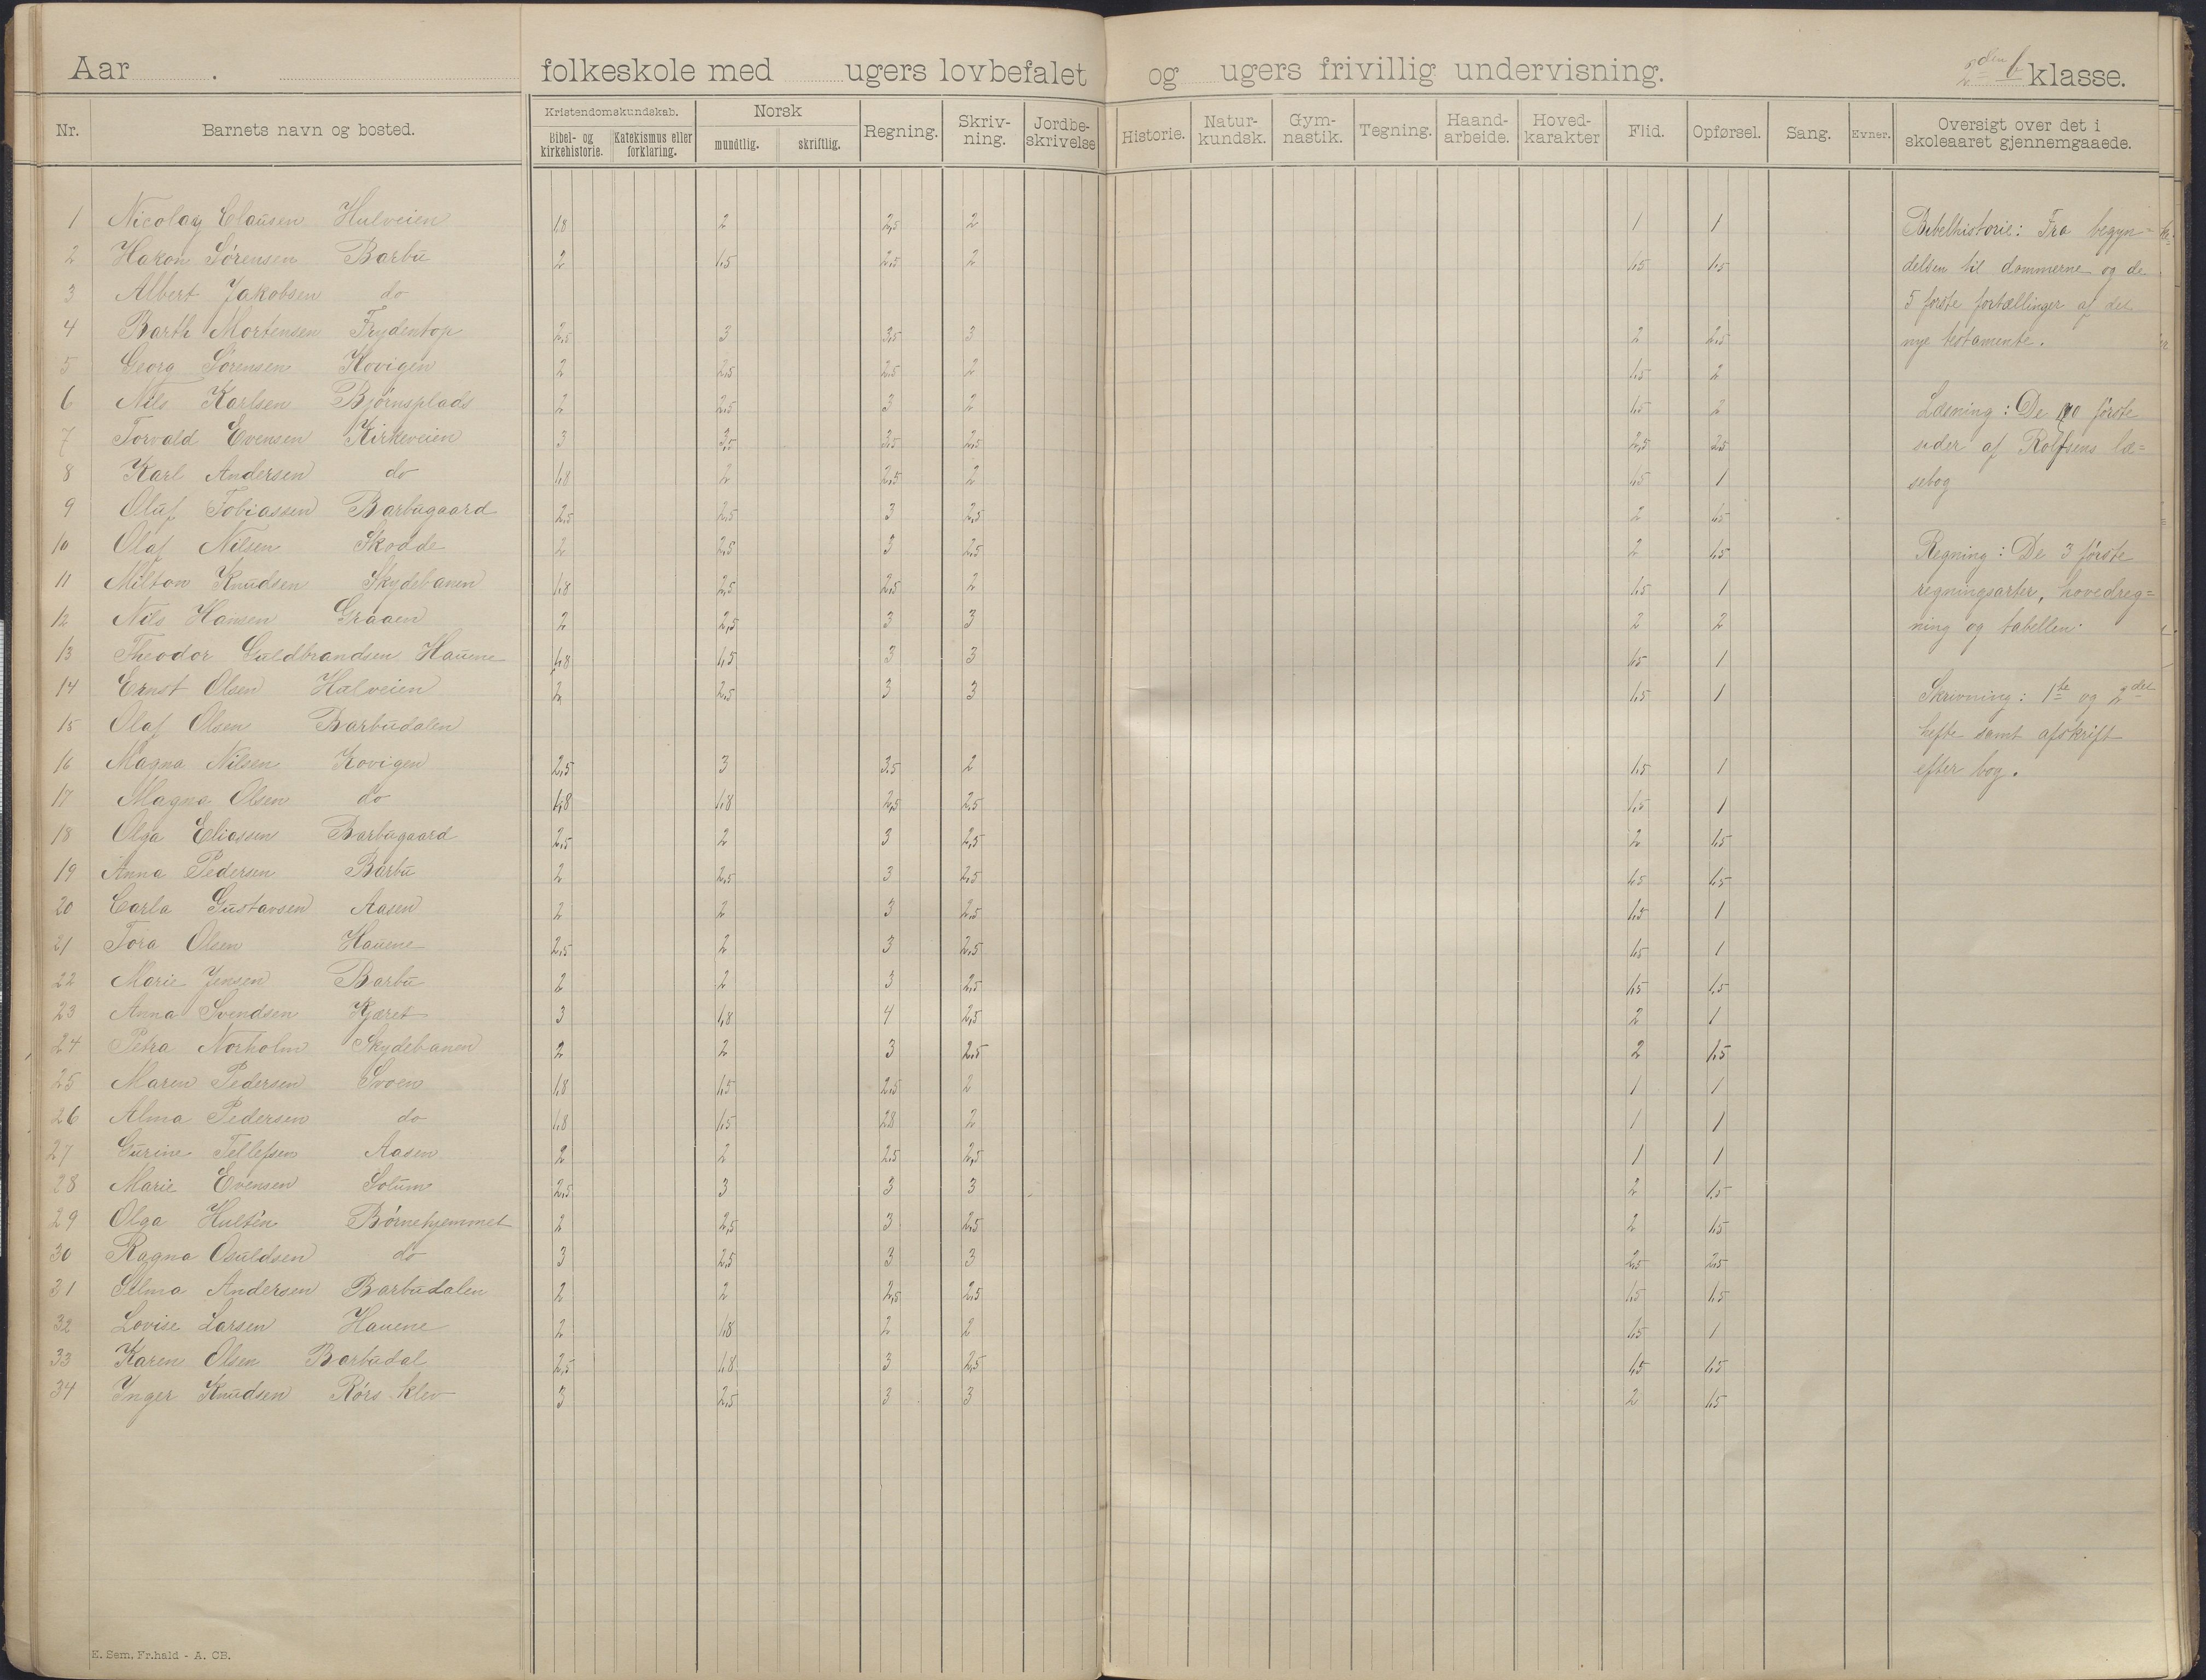 Aar . folkeskole med ugers lovbefalet og ugers frivillig undervisning. 2den b klasse.
Nr. Barnets navn og bosted. Kristendomskundskab. Bibel- og kirkehistorie. Katekismus eller forklaring. Norsk mundtlig. skriftlig. Regning. Skriv-ning. Jordbe-skrivelse Historie. Natur-kundsk. Gym-nastik. Tegning. Haand-arbeide. Hoved-karakter Flid. Opførsel. Sang. Evner. Oversigt over det i skoleaaret gjennemgaaede.
1 Nicolay Clausen Hulveien 1,8 2 2,5 2 1 1
2 Hakon Sørensen Barbu 2 1,5 2,5 2 1,5 1,5
3 Albert Jakobsen do
4 Barth Mortensen Frydentop 2,5 3 3,5 3 2 2,5
5 Georg Sørensen Kovigen 2 2,5 2,5 2 1,5 2
6 Nils Karlsen Bjørnsplads 2 2,5 3 2 1,5 2
7 Torvald Evensen Kirkeveien 3 3,5 3,5 2,5 2,5 2,5
8 Karl Andersen do 1,8 2 2,5 2 1,5 1
9 Oluf Tobiassen Barbugaard 2,5 2,5 3 2,5 2 1,5
10 Olaf Nilsen Skodde 2 2,5 3 2,5 2 1,5
11 Milton Knudsen Skydebanen 1,8 2,5 2,5 2 1,5 1
12 Nils Hansen Graaen 2 2,5 3 3 2 2
13 Theodor Guldbrandsen Hauene 1,8 1,5 3 3 1,5 1
14 Ernst Olsen Hulveien 2 2,5 3 3 1,5 1
15 Olaf Olsen Barbudalen
16 Magna Nilsen Kovigen 2,5 3 3,5 2 1,5 1
17 Magna Olsen do 1,8 1,8 2,5 2,5 1,5 1
18 Olga Eliassen Barbugaard 2,5 2 3 2,5 2 1,5
19 Anna Pedersen Barbu 2 2,5 3 2,5 1,5 1,5
20 Carla Gustavsen Aasen 2 2 3 2,5 1,5 1
21 Tora Olsen Hauene 2,5 2 3 2,5 1,5 1
22 Marie Jensen Barbu 2 2 3 2,5 1,5 1,5
23 Anna Svendsen Kjæret 3 1,8 4 2,5 2 1
24 Petra Norholm Skydebanen 2 2 3 2,5 2 1,5
25 Maren Pedersen Svoen 1,8 1,5 2,5 2 1 1
26 Alma Pedersen do 1,8 1,5 2,8 2 1 1
27 Gurine Tellefsen Aasen 2 2 2,5 2,5 1 1
28 Marie Evensen Solum 2,5 3 3 3 2 1,5
29 Olga Hultén Børnehjemmet 2 2,5 3 2,5 2 1,5
30 Ragna Osuldsen do 3 2,5 3 3 2,5 2,5
31 Selma Andersen Barbudalen 2 2 2,5 2,5 1,5 1,5
32 Lovise Larsen Hauene 2 1,8 2 2 1,5 1
33 Karen Olsen Barbudal 2,5 1,8 3 2,5 1,5 1,5
34 Inger Knudsen Rørs klev 3 2,5 3 3 2 1,5
Bibelhistorie: Fra begyn=
delsen til dommerne og de
5 første fortællinger af det
nye testamente.
Læsning: De 90 første
sider af Rolfsens læ=
sebog
Regning: De 3 første
regningsarter, hovedreg=
ning og tabellen.
Skrivning: 1ste og 2det
hefte samt afskrift
efter bog.
E. Sem, Fr.hald - A. CB.